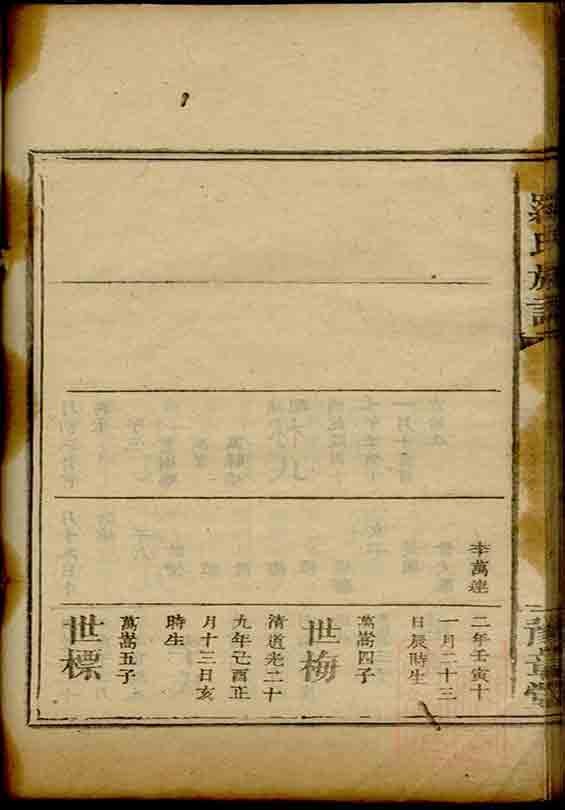 羅氏族譜
豫章堂
李萬逵
二年壬寅十
一月二十三
日辰時生
萬嵩四子
世梅
清道光二十
九年己酉正
月十三日亥
時生
萬嵩五子
世標